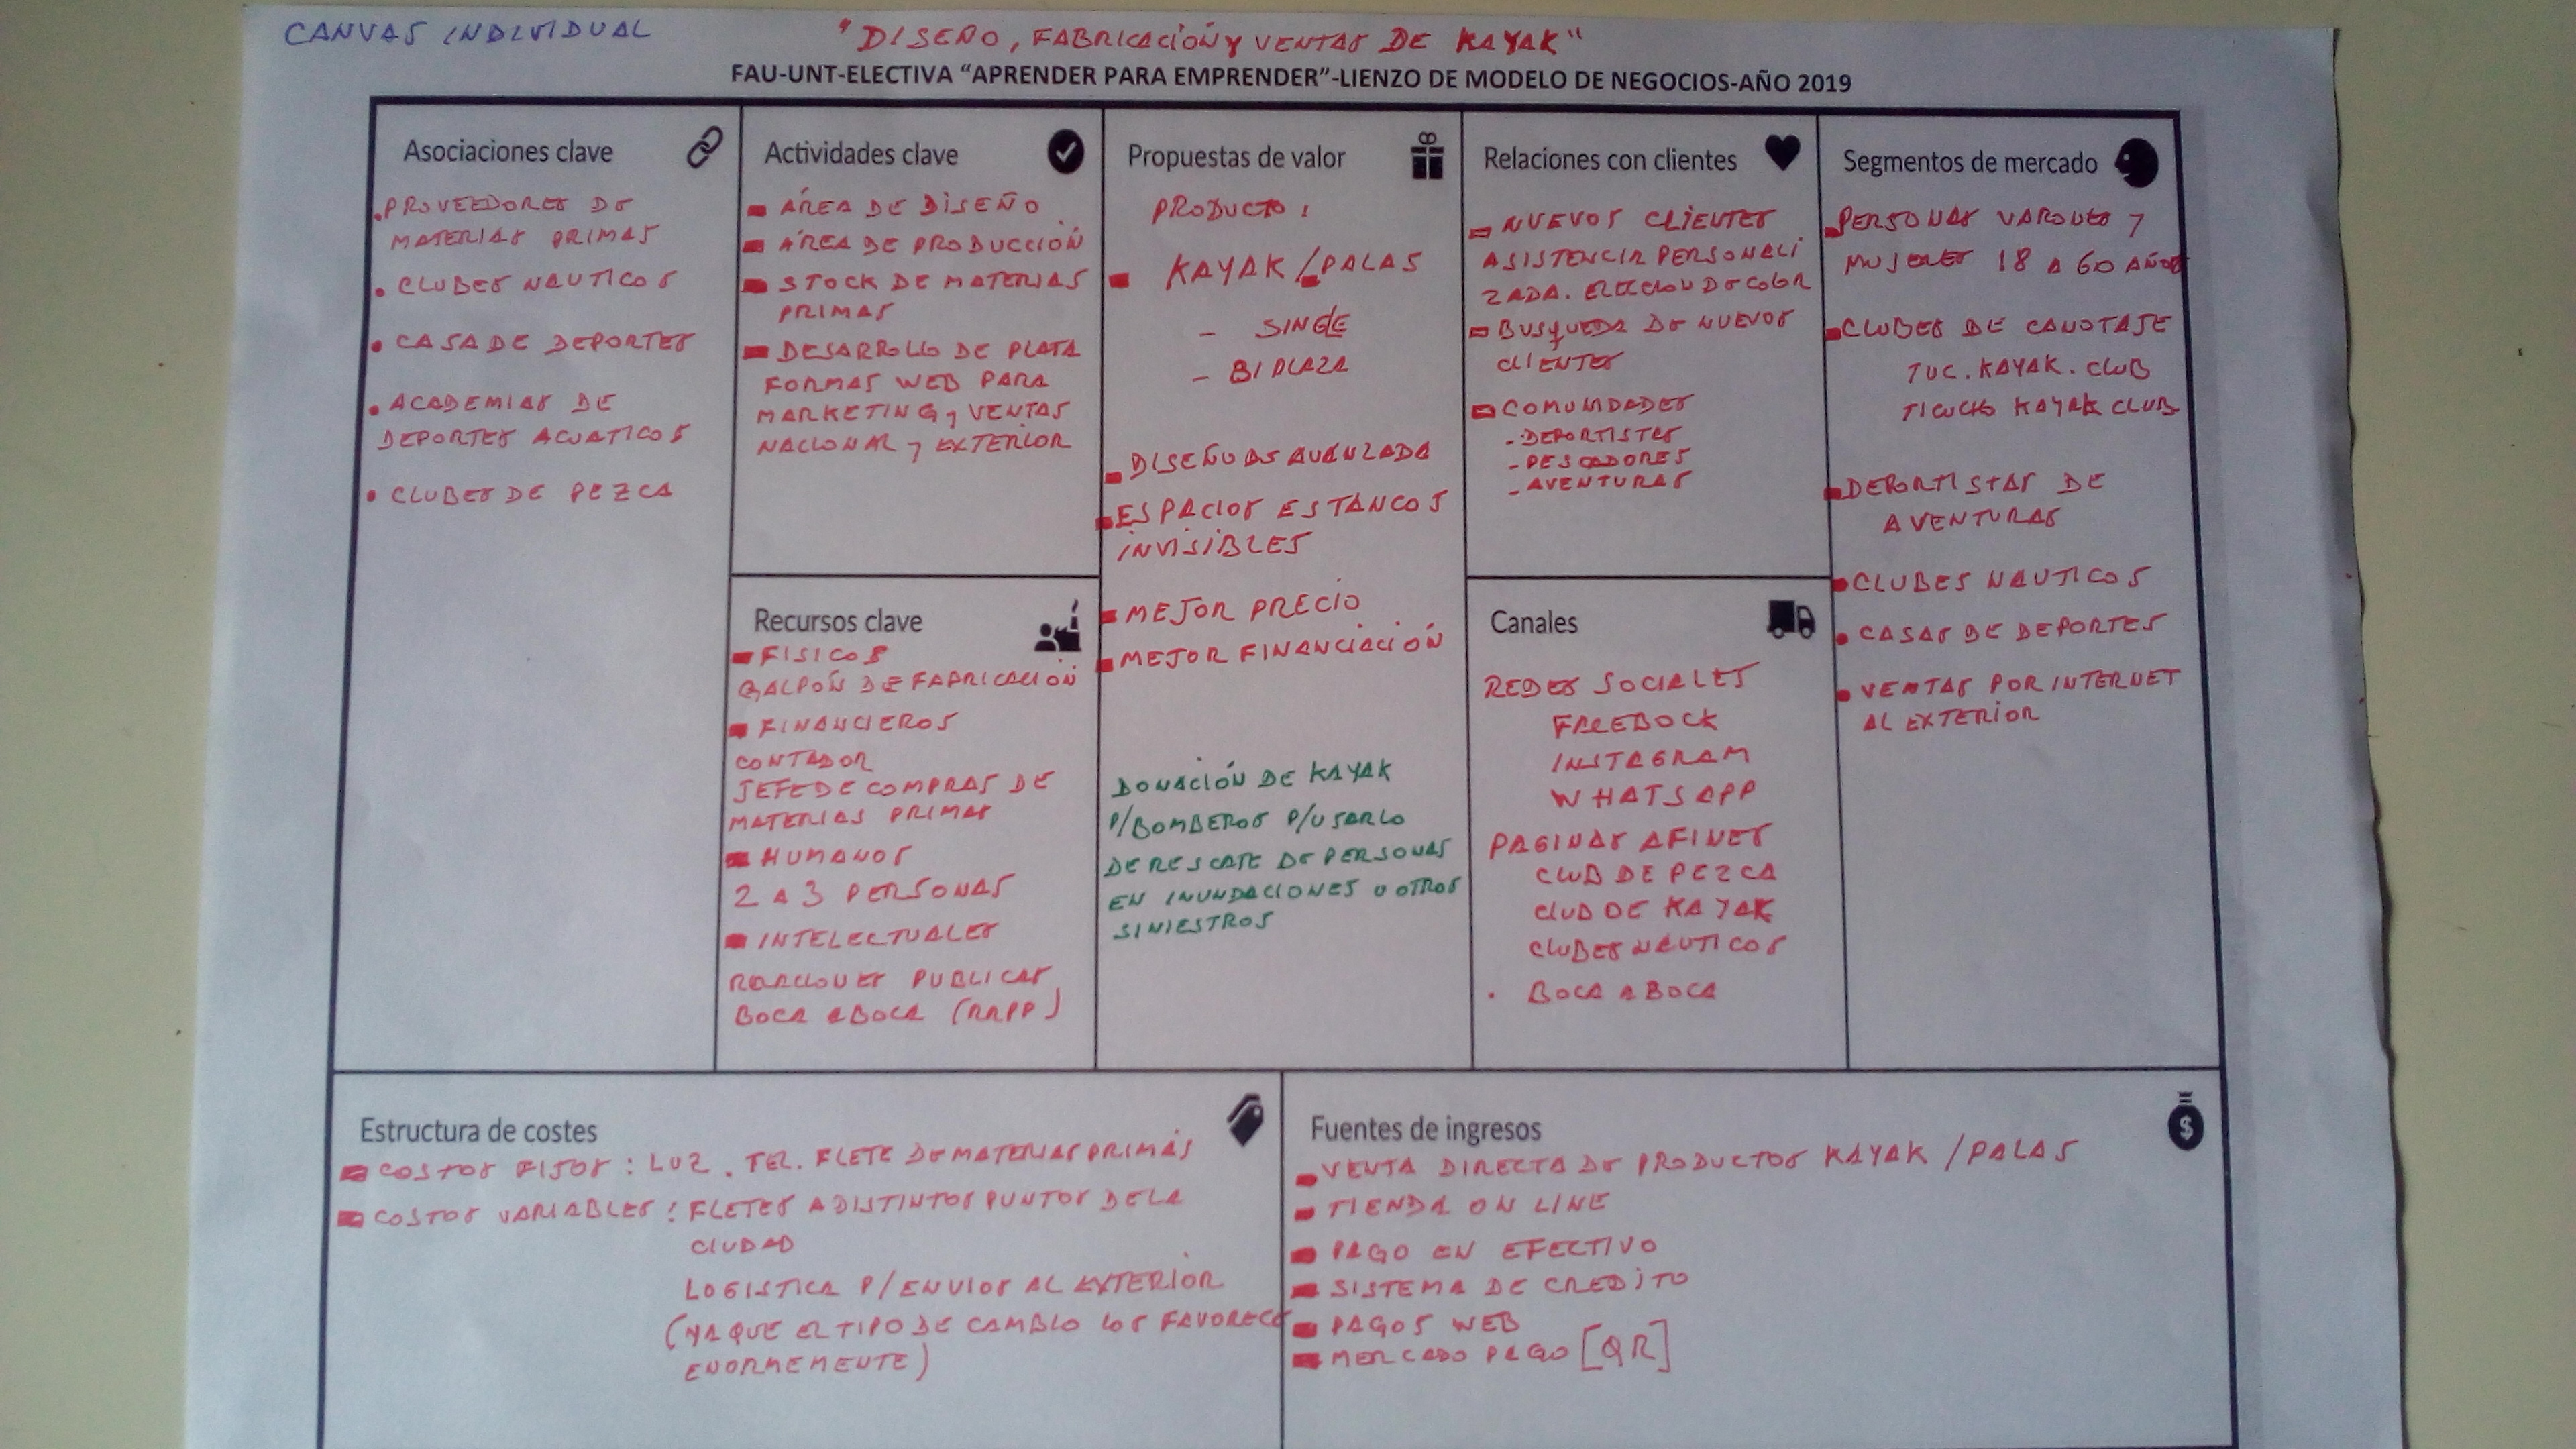 CANVAS INDIVIDUAL
"DISEÑO, FABRICACIÓN Y VENTAS DE KAYAK"
FAU-UNT-ELECTIVA “APRENDER PARA EMPRENDER”-LIENZO DE MODELO DE NEGOCIOS-AÑO 2019
Asociaciones clave
.PROVEEDORES DE
MATERIAS PRIMAS
• CLUBES NAUTICOS
• CASA DE DEPORTES
• ACADEMIAS DE
DEPORTES ACUATICOS
• CLUBES DE PEZCA
Actividades clave
- ÁREA DE DISEÑO
- ÁREA DE PRODUCCIÓN
- STOCK DE MATERIAS
PRIMAS
- DESARROLLO DE PLATA
FORMAS WEB PARA
MARKETING y VENTAS
NACIONAL y EXTERIOR
Recursos clave
- FISICOS
GALPÓN DE FABRICACIÓN
- FINANCIEROS
CONTADOR
JEFE DE COMPRAS DE
MATERIAS PRIMAS
- HUMANOS
2 A 3 PERSONAS
- INTELECTUALES
RELACIONES PUBLICAS
BOCA A BOCA (RRPP)
Propuestas de valor
PRODUCTO:
- KAYAK /PALAS
- SINGLE
- BIPLAZA
- DISEÑO DE AVANZADA
- ESPACIOS ESTANCOS
INVISIBLES
- MEJOR PRECIO
- MEJOR FINANCIACIÓN
DONACIÓN DE KAYAK
P/BOMBEROS P/USARLO
DE RESCATE DE PERSONAS
EN INUNDACIONES U OTROS
SINIESTROS
Relaciones con clientes
- NUEVOS CLIENTES
ASISTENCIA PERSONALI
ZADA. ELECCION DE COLOR
- BUSQUEDA DE NUEVOS
CLIENTES
- COMUNIDADES
- DEPORTISTAS
- PESCADORES
- AVENTURAS
Canales
REDES SOCIALES
FACEBOCK
INSTAGRAM
WHATSAPP
PAGINAS AFINES
CLUB DE PEZCA
CLUB DE KAYAK
CLUBES NAUTICOS
. BOCA A BOCA
Segmentos de mercado
- PERSONAS VARONES y
MUJERES 18 A 60 AÑOS
- CLUBES DE CANOTAJE
TUC. KAYAK. CLUB
TICUCHO KAYAK CLUB
- DEPORTISTAS DE
AVENTURAS
- CLUBES NAUTICOS
• CASAS DE DEPORTES
• VENTAS POR INTERNET
AL EXTERIOR
Estructura de costes
- COSTOS FIJOS: LUZ. TEL. FLETE DE MATERIAS PRIMAS
- COSTOS VARIABLES: FLETES A DISTINTOS PUNTOS DE LA
CIUDAD
LOGISTICA P/ENVIOS AL EXTERIOR
(YA QUE EL TIPO DE CAMBIO LOS FAVORECE
ENORMEMENTE)
Fuentes de ingresos
- VENTA DIRECTA DE PRODUCTOS KAYAK /PALAS
- TIENDA ON LINE
- PAGO EN EFECTIVO
- SISTEMA DE CREDITO
- PAGOS WEB
- MERCADO PAGO [QR]